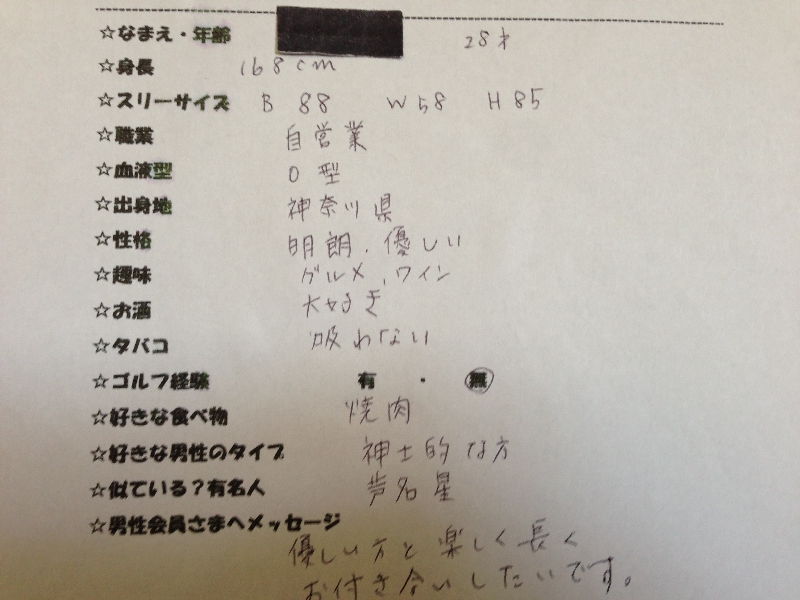 ☆なまえ・年齢 28才
☆身長 168cm
☆スリーサイズ B 88 W 58 H 85
☆職業 自営業
☆血液型 O型
☆出身地 神奈川県
☆性格 明朗、優しい
☆趣味 グルメ、ワイン
☆お酒 大好き
☆タバコ 吸わない
☆ゴルフ経験 有 ・ 無
☆好きな食べ物 焼肉
☆好きな男性のタイプ 神士的な方
☆似ている？有名人 芦名星
☆男性会員さまへメッセージ
優しい方と楽しく長く
お付き合いしたいです。